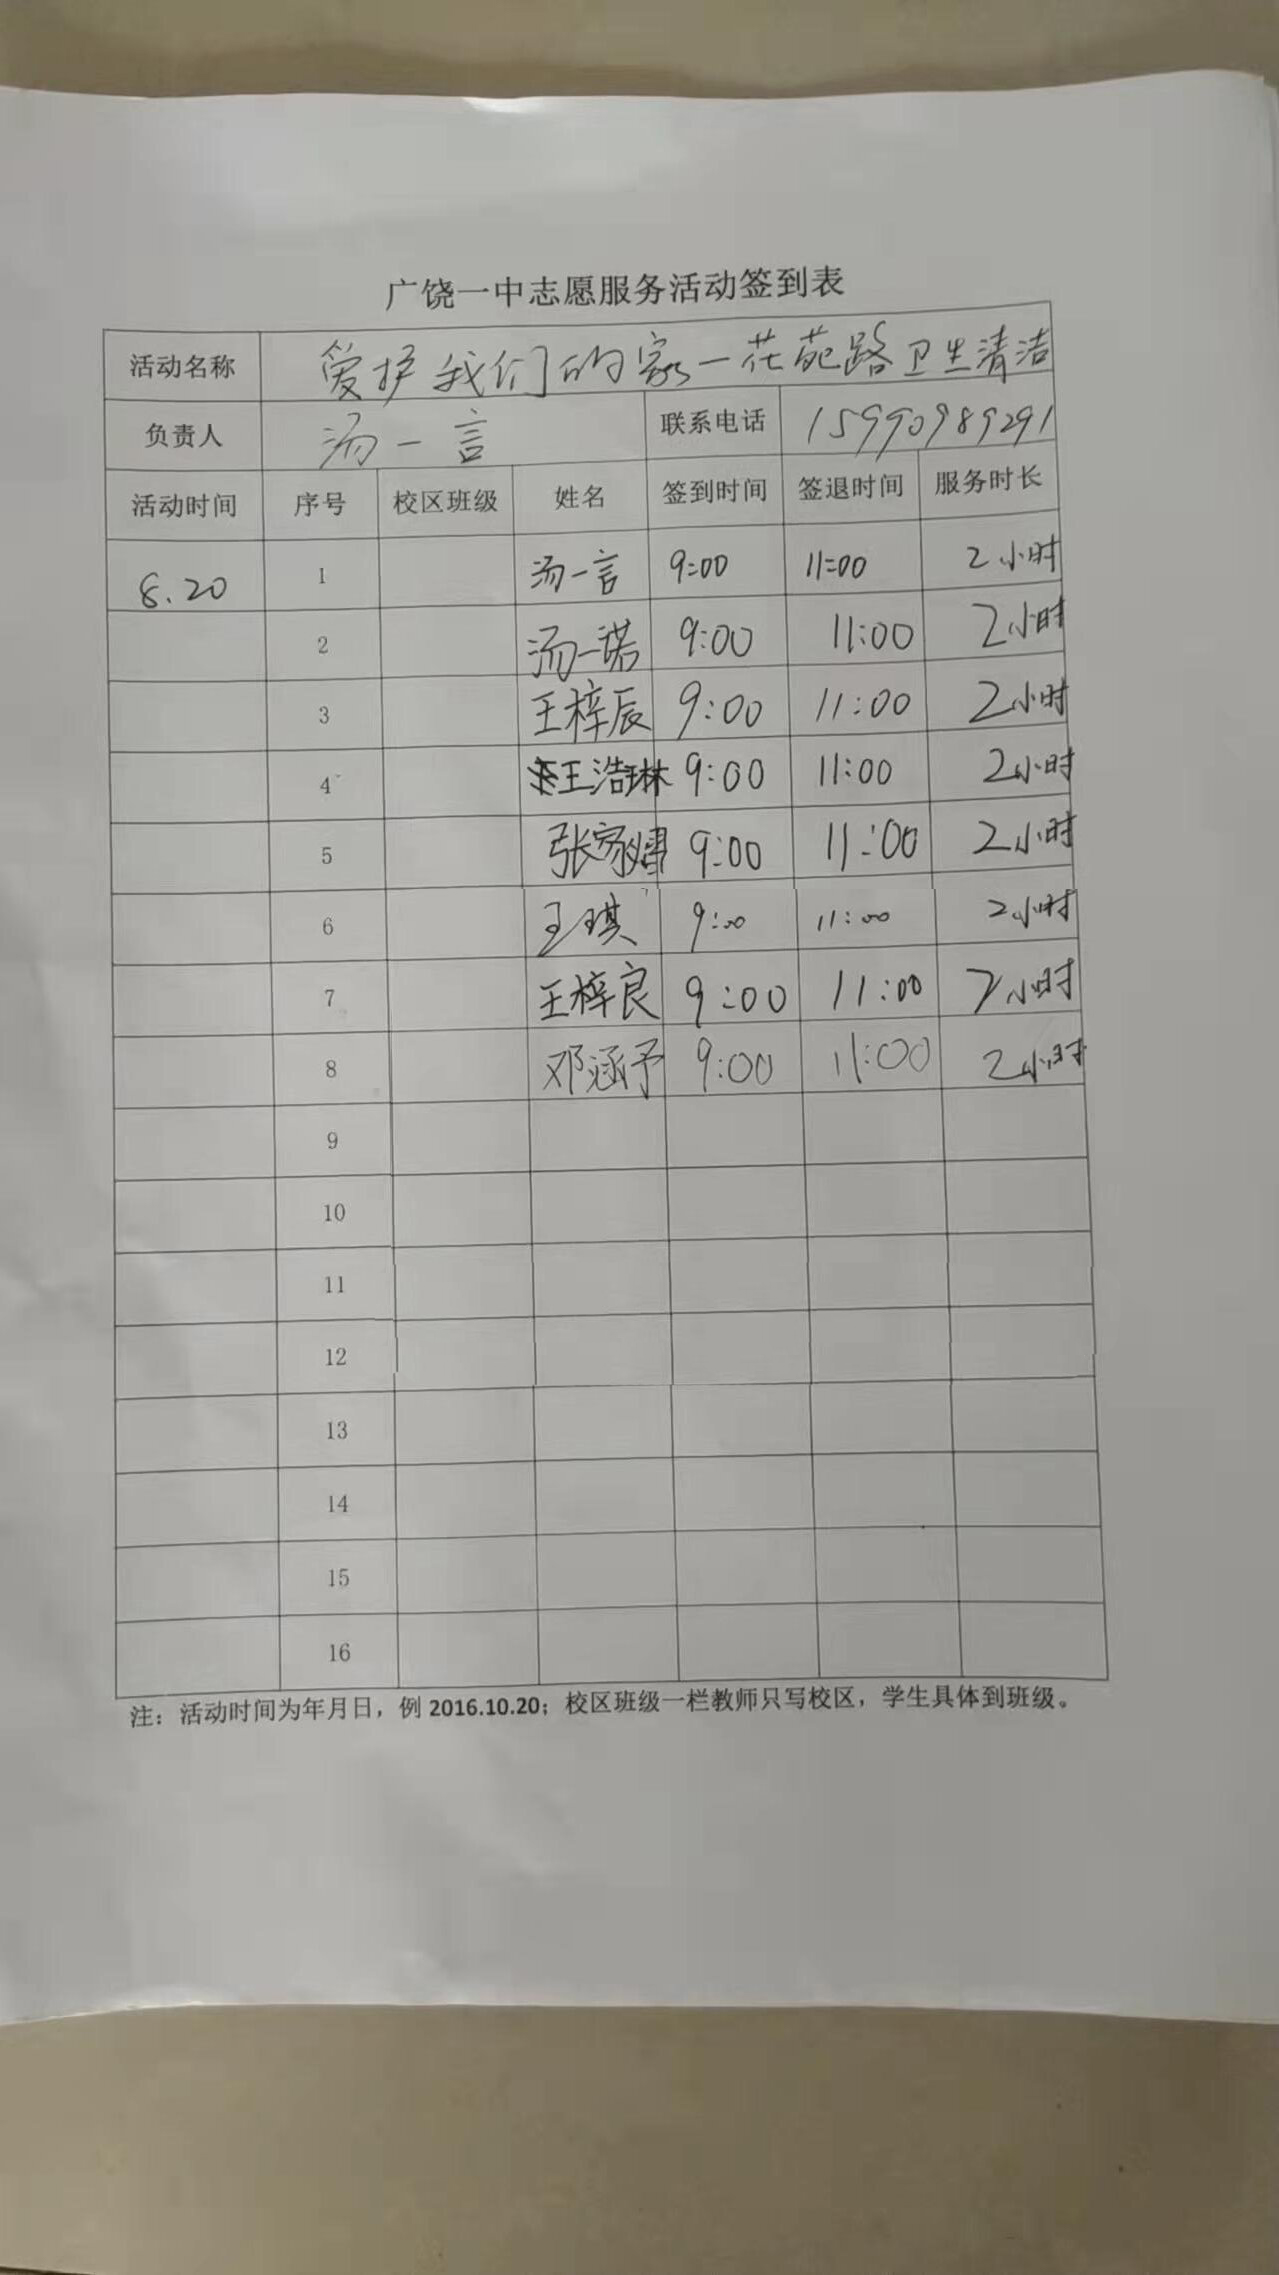 广饶一中志愿服务活动签到表
活动名称 爱护我们的家一花苑路卫生清洁
负责人 汤一言 联系电话 15990989291
活动时间 序号 校区班级 姓名 签到时间 签退时间 服务时长
8.20 1 汤一言 9:00 11:00 2小时
2 汤一诺 9:00 11:00 2小时
3 王梓辰 9:00 11:00 2小时
4 王浩琳 9:00 11:00 2小时
5 张家熠 9:00 11:00 2小时
6 王琪 9:00 11:00 2小时
7 王梓良 9:00 11:00 2小时
8 邓涵予 9:00 11:00 2小时
9
10
11
12
13
14
15
16
注：活动时间为年月日，例 2016.10.20；校区班级一栏教师只写校区，学生具体到班级。